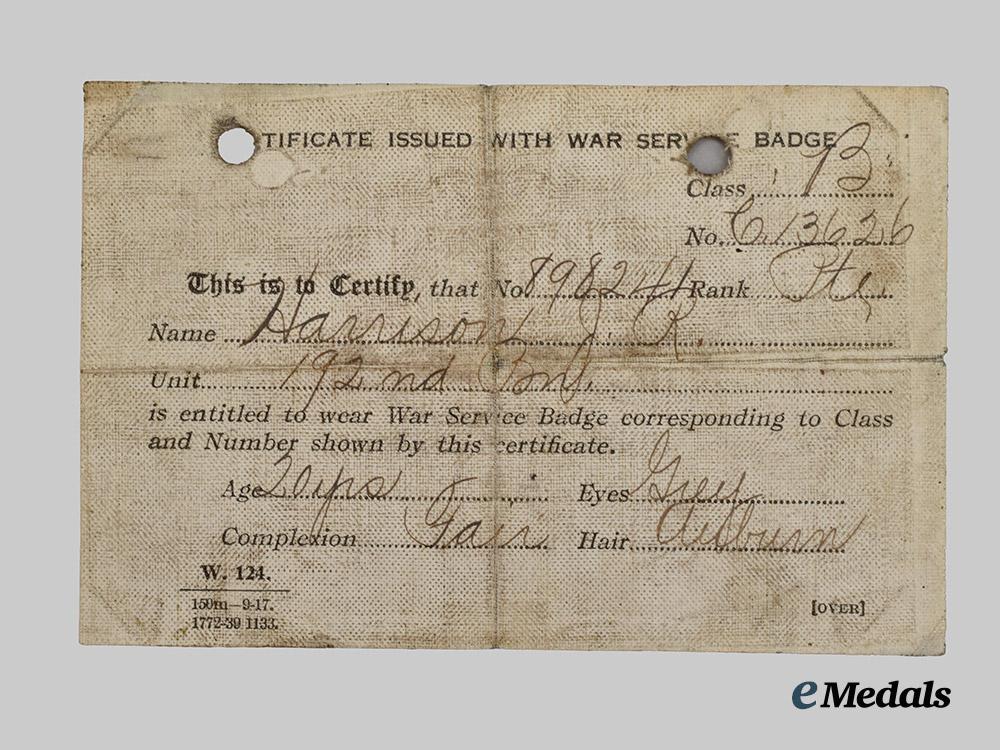 TIFICATE ISSUED WITH WAR SERV E BADGE
Class B
No. C. 13626
This is to Certify, that No 898241 Rank Pte,
Name Harrison J. R.
Unit 192 nd Bn.
is entitled to wear War Service Badge corresponding to Class
and Number shown by this certificate.
Age 20 yrs Eyes Grey
Complexion Fair Hair Auburn
W. 124.
150m—9-17.
1772-39 1133.
[OVER]
eMedals